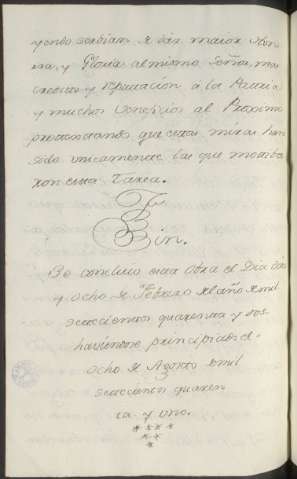 yendo serbian de dar maior Hon
rra, y Gloria al mismo Señor, mas
credito y reputacion a la Patria
y muchos beneficios al Proximo
protestando que estas miras han
sido unicamente las que motiba
ron esta Tarea.
Fin.
Se concluio esta obra el Dia diez
y ocho de Febrero del año de mil
setecientos quarenta y dos
haviendose principiado el
ocho de Agosto de mil
setecientos quaren
ta y uno.